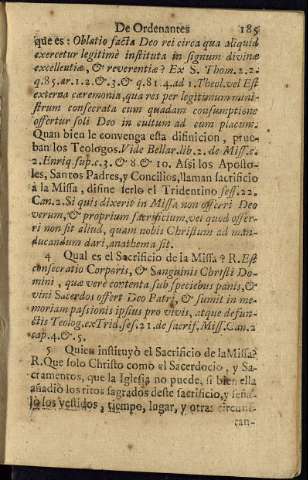 De Ordenantes 185
que es: Oblatio facta Deo rei circa qua aliquid
exercetur legitimè instituta in signum divinæ
excellentiæ, & reverentiæ? Ex S. Thom. 2.2.
q.85. ar. 1.2. & 3. & q. 81.4. ad 1. Theol. vel Est
externa ceremonia, qua res per legitimum mini-
strum consecrata cum quadam consumptione
offertur soli Deo in cultum ad eum placum.
Quan bien le convenga esta difinicion, prue-
ban los Teologos. Vide Bellar. lib. 2. de Miss. c.
2. Enriq. sup. c. 3. & 8. & 10. Assi los Aposto-
les, Santos Padres, y Concilios, llaman sacrificio
à la Missa, difine serlo el Tridentino sess. 22.
Can. 2. Si quis dixerit in Missa non offerri Deo
verum, & proprium sacrificium, vel quod offer-
ri non sit aliud, quam nobis Christum ad man-
ducandum dari, anathema sit.
4 Qual es el Sacrificio de la Missa? R. Est
consecratio Corporis, & Sanguinis Christi Do-
mini, quæ verè contenta sub speciebus panis, &
vini Sacerdos offert Deo Patri, & sumit in me-
moriam passionis ipsius pro vivis, atque defun-
ctis Teolog. ex Trid. ses. 21. de sacrif. Miss. Can. 2
cap. 4. & 5.
5 Quien instituyò el Sacrificio de la Missa?
R. Que solo Christo como el Sacerdocio, y Sa-
cramentos, que la Iglesia no puede, si bien ella
añadiò los ritos sagrados deste sacrificio, y seña-
lò los vestidos, tiempo, lugar, y otras circuns-
tan-